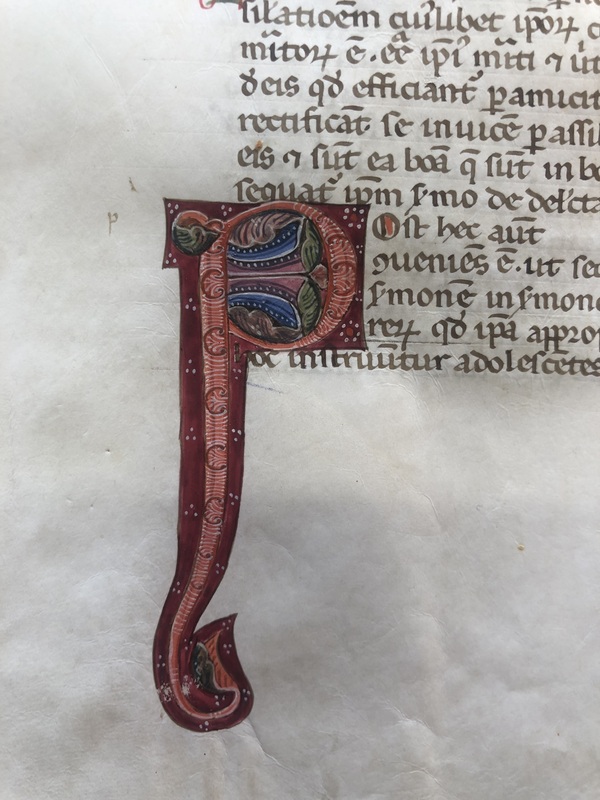 silatioēm cuiꝰlibet ipoꝝ
mītoꝝ ē . eē ipi mīti ⁊ ut
deis qd efficiant ꝑamicit
rectificāt se inuicē ꝑ
eis ⁊ sūt ea boā q̄ sūt in bo
sequat ipm smo de delcta
p
POst hec aūt
ꝯuenies ē . ut sec
smonē in smone
reꝝ qd ipa appro
hoc instruūtur adolescētes